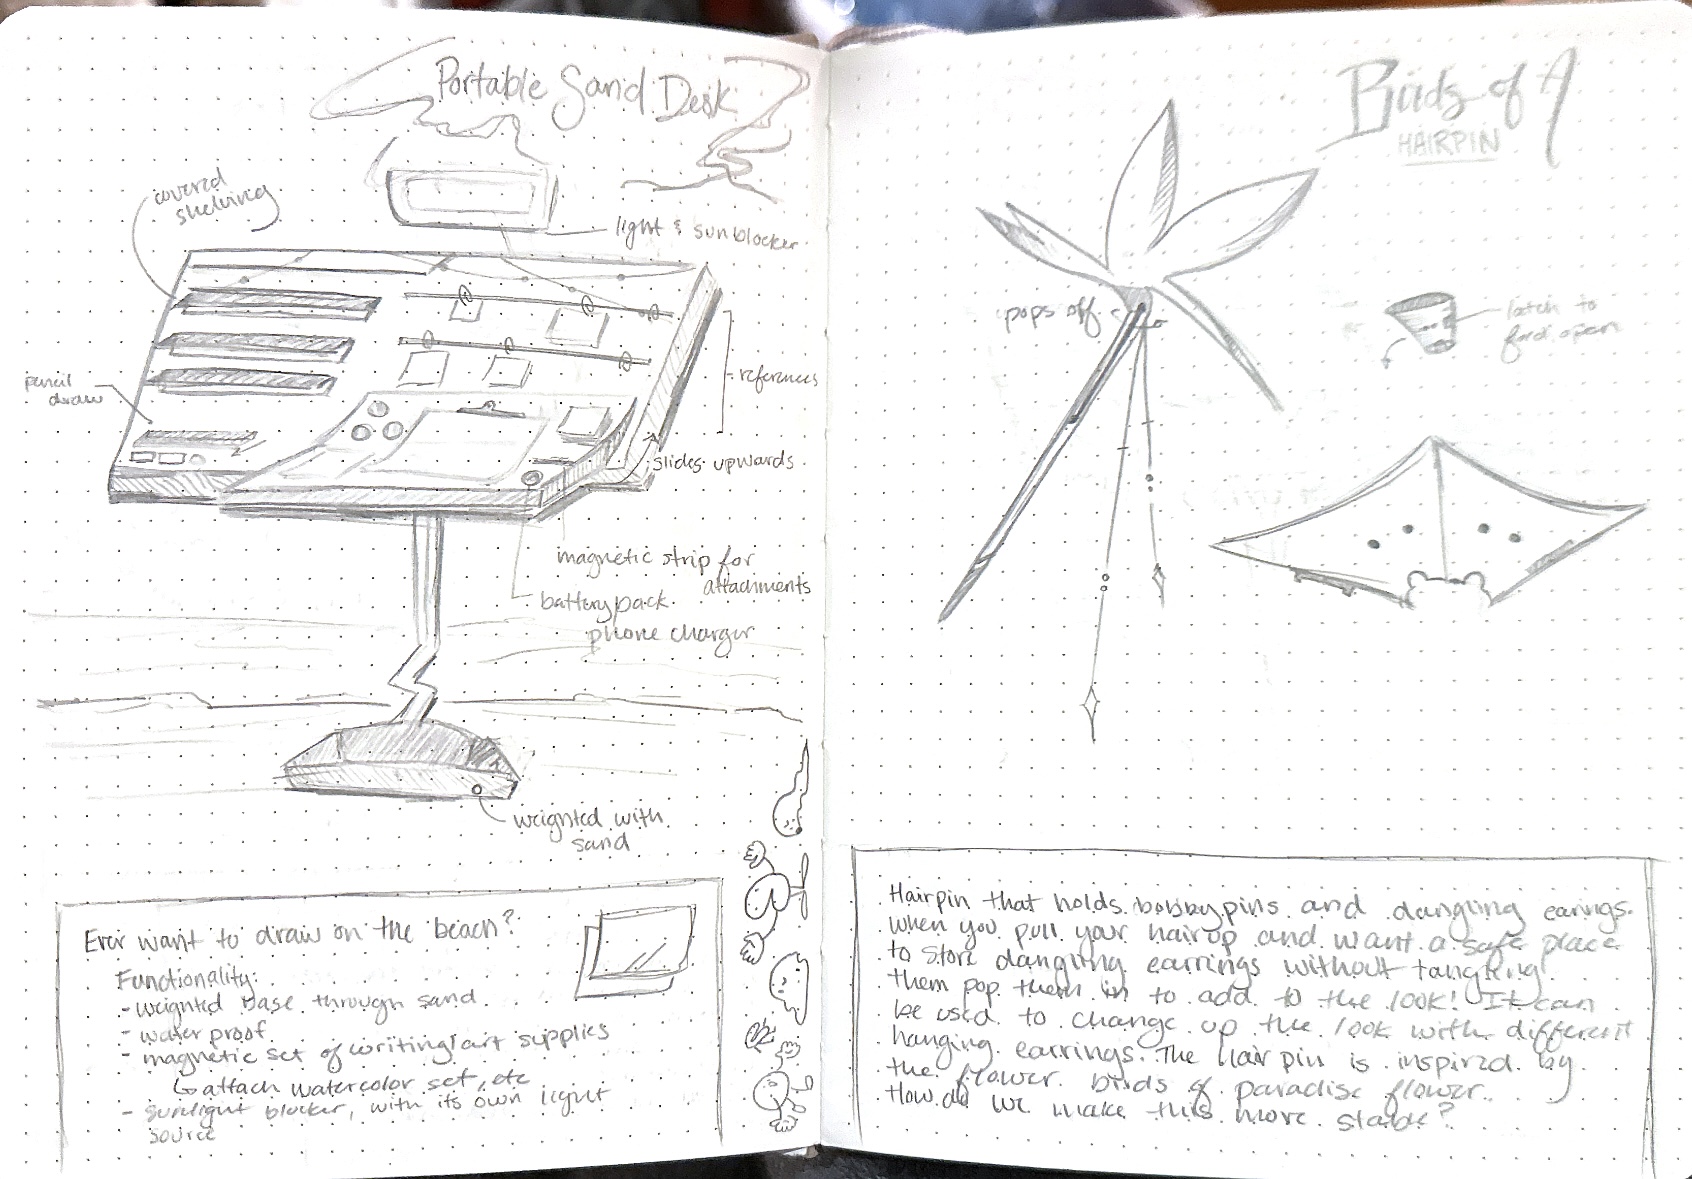 Portable Sand Desk
covered
shelving
light & sunblocker
pencil
draw
references
slides upwards
magnetic strip for
attachments
battery pack
phone charger
weighted with
sand
Ever want to draw on the beach?
Functionality:
- weighted base through sand
- water proof
- magnetic set of writing/art supplies
↳ attach watercolor set, etc
- sunlight blocker, with its own light
source
Birds of
HAIRPIN
pops off
latch to
fold open
Hairpin that holds bobbypins and dangling earings.
When you pull your hair up and want a safe place
to store dangling earrings without tangling
them pop them in to add to the look! It can
be used to change up the look with different
hanging earrings. The Hair pin is inspired by
the flower birds of paradise flower.
How do we make this more stable?